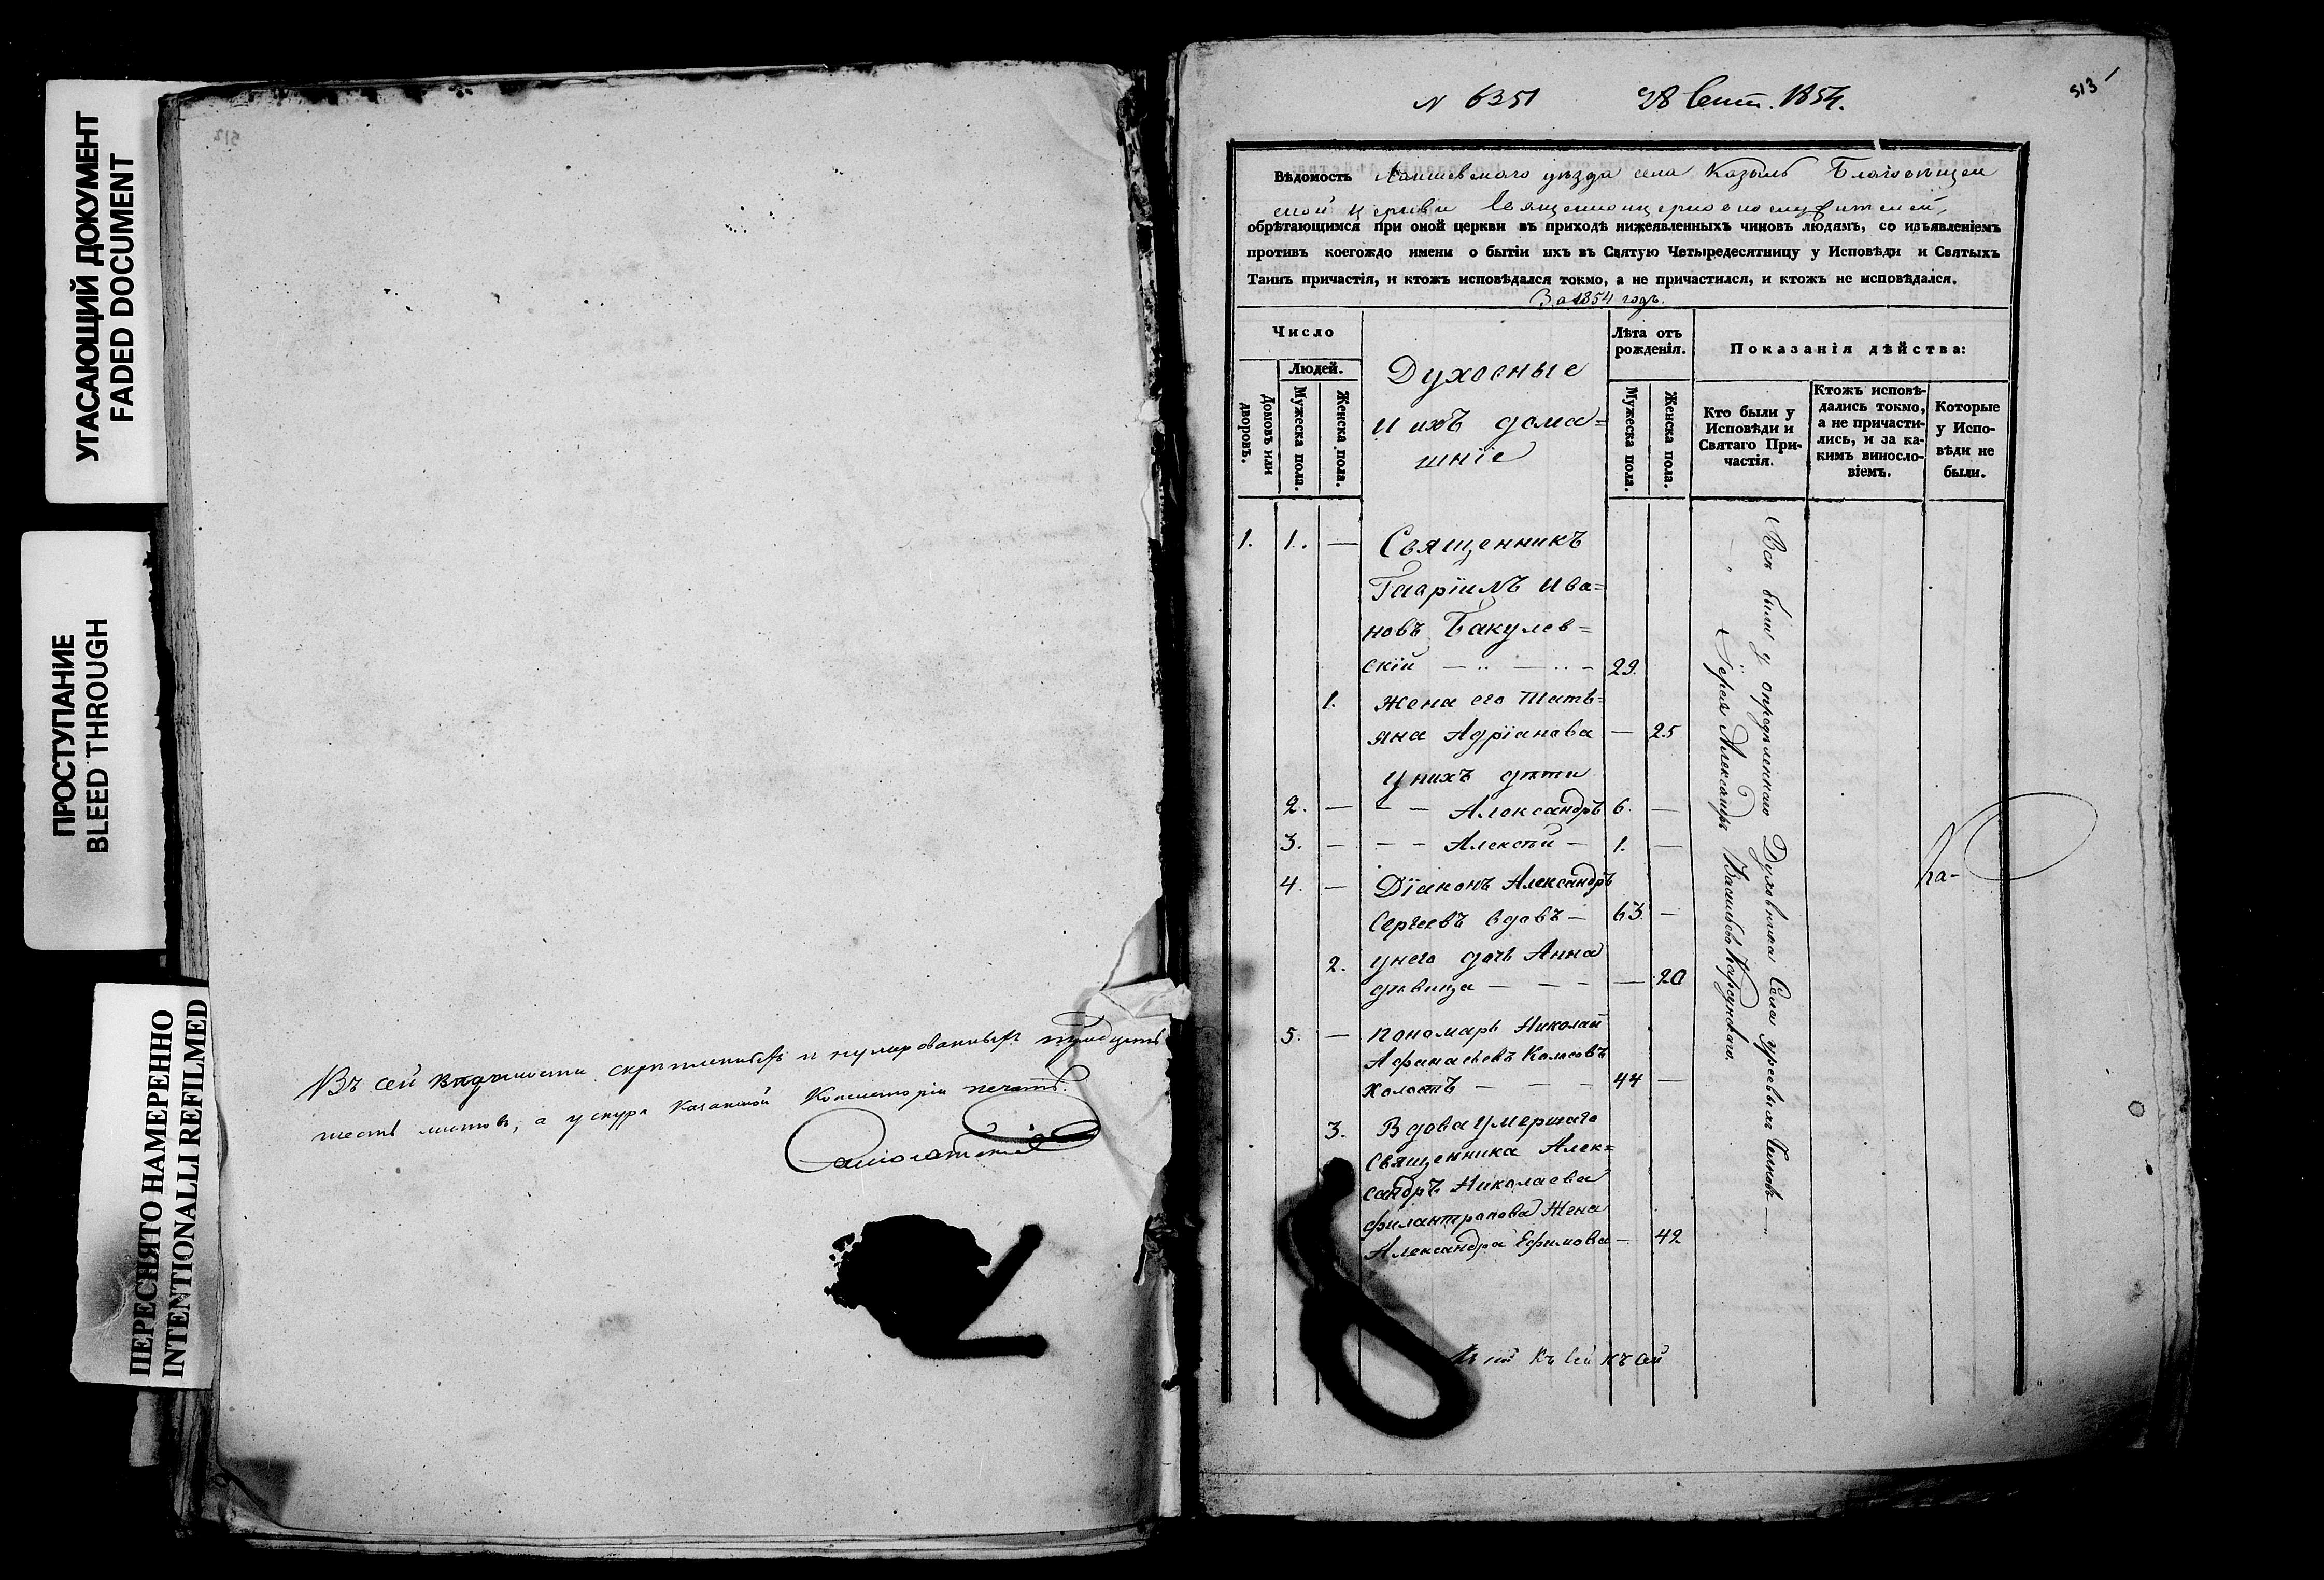 УГАСАЮЩИЙ ДОКУМЕНТ
FADED DOCUMENT
ПРОСТУПАНИЕ
BLEED THROUGH
ПЕРЕСНЯТО НАМЕРЕННО
INTENTIONALLI REFILMED
512
Въ сей ведомости скрепленныхъ и нумерованныхъ тридцать
шесть листовъ, а у снура Казанской Консисторіи печать.
N 6351 28 Сент. 1854.
513
Вѣдомость Лаишевскаго уѣзда села Казыль Благовѣщен
ской церкви Священноцерковнослужителей,
обрѣтающимся при оной церкви въ приходѣ нижеявленныхъ чиновъ людямъ, со изъявленіемъ
противъ коегождо имени о бытіи ихъ въ Святую Четыредесятницу у Исповѣди и Святыхъ
Таинъ причастія, и ктожъ исповѣдался токмо, а не причастился, и ктожъ не исповѣдался.
За 1854 годъ.
Число
Людей.
Домовъ или дворовъ.
Мужеска пола.
Женска пола.
Духовные
и ихъ дома=
шніе
Лѣта отъ
рожденія.
Мужеска пола.
Женска пола.
Показанія дѣйства:
Кто были у
Исповѣди и
Святаго При-
частія.
Ктожъ исповѣ-
дались токмо,
а не причасти-
лись, и за ка-
кимъ виносло-
віемъ.
Которые
у Испо-
вѣди не
были.
1. 1. — Священникъ
Гавріилъ Ива=
новъ Бакулев=
скій — 29.
1. Жена его Тать=
яна Адріанова — 25
У нихъ дѣти
2. — — — Александръ 6. —
3. — — — Алексѣй — 1. —
4. — Діаконъ Александръ
Сергеевъ вдовъ — 63 —
2. у него дочь Анна
дѣвица — — — — 20
5. — Пономарь Николай
Афанасьевъ Колосовъ
Холостъ — — — 44 —
3. Вдова умершаго
Священника Алек=
сандръ Николаева
Филантропова Жена
Александра Ефимова — 42
Всѣ были у опредѣленнаго Духовника Села Челновъ
Іерея Александра Васильева
Къ Сей къ сей